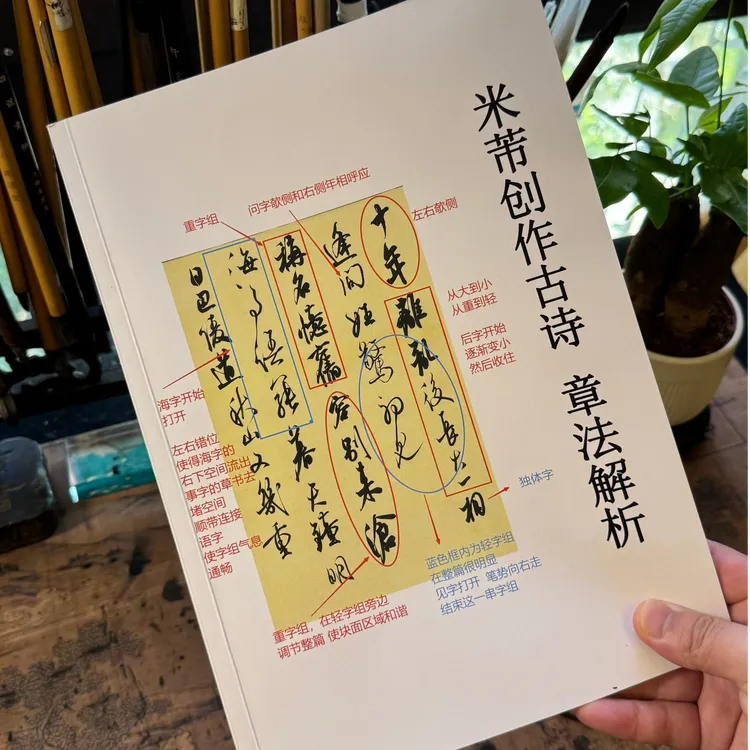 米芾创作古诗 章法解析
问字欹侧和右侧年相呼应
重字组
左右欹侧
从大到小
从重到轻
后字开始
逐渐变小
然后收住
独体字
十年離亂後長大一相
逢問姓驚初見
稱名憶舊容別來滄
海事語罷暮天鐘明
日巴陵道秋山又幾重
海字开始
打开
左右错位
使得海字的
右下空间流出
事字的草书去
堵空间
顺带连接
语字
使字组气息
通畅
蓝色框内为轻字组
在整篇很明显
见字打开 笔势向右走
结束这一串字组
重字组，在轻字组旁边
调节整篇 使块面区域和谐